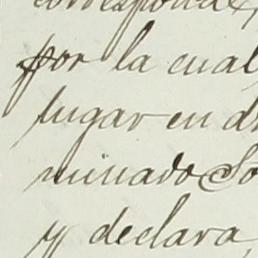 corresponde,
por la cual
lugar en d
minado So
y declara,